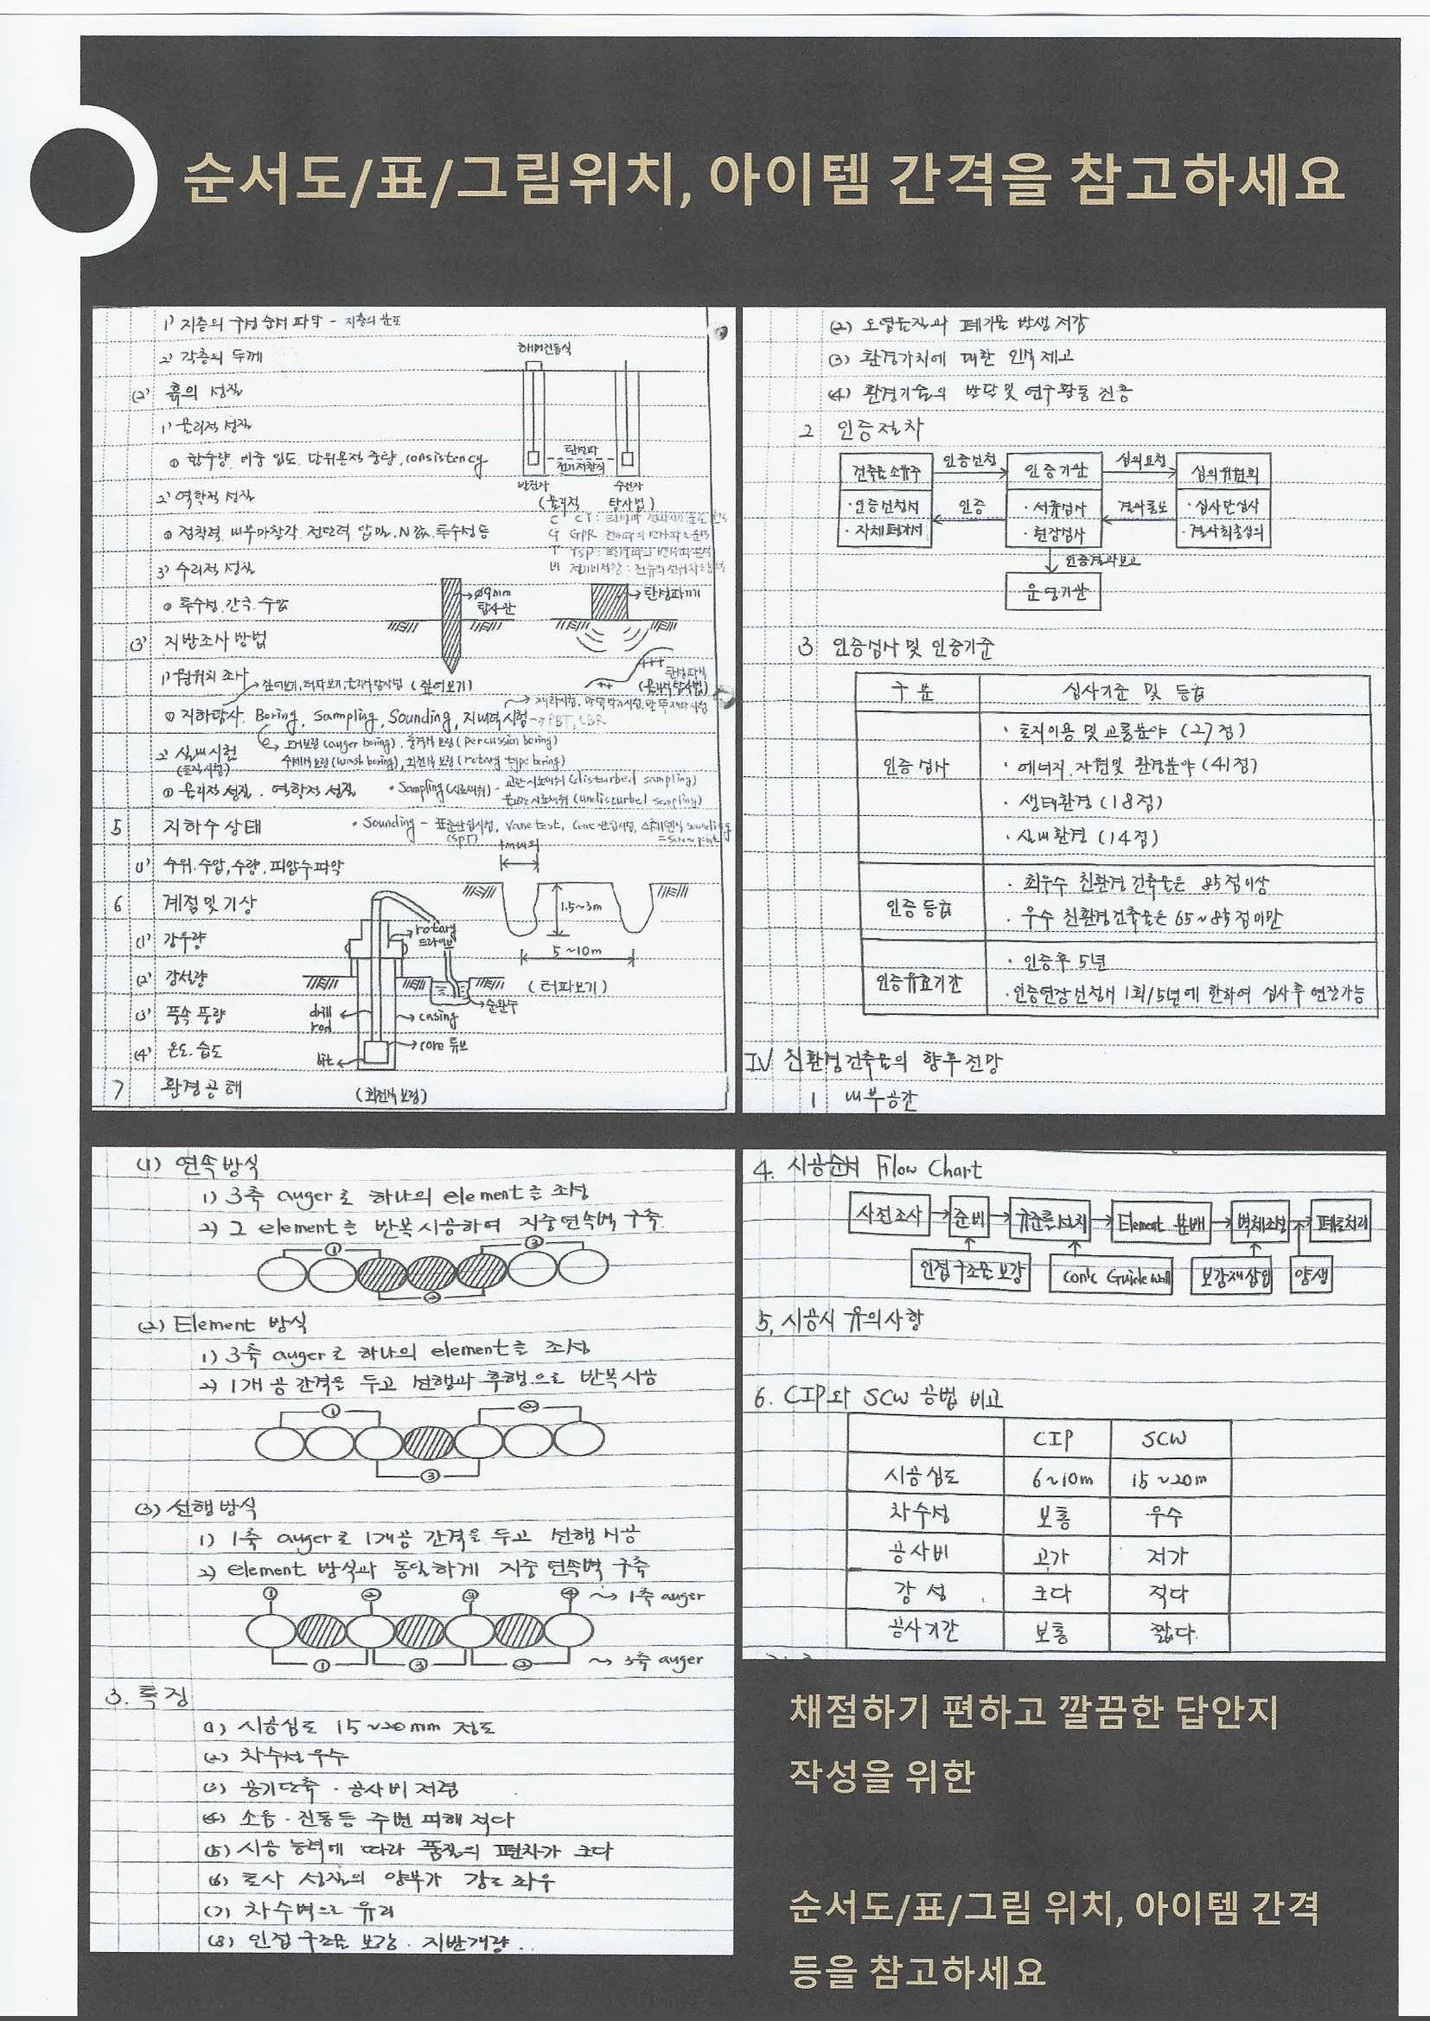 순서도/표/그림위치, 아이템 간격을 참고하세요
1) 지층의 구성 순서 파악 - 지층의 분포
2) 각층의 두께
(2) 흙의 성질
1) 물리적 성질
① 함수량, 비중, 입도, 단위용적 중량, consistency
2) 역학적 성질
① 점착력, 내부마찰각, 전단력, N값, 투수성 등
3) 수리적 성질
① 투수성, 간극, 수압
(3) 지반조사 방법
1) 원위치 조사
짚어보기, 터파보기, 물리적 탐사법 (짚어보기)
① 지하탐사, Boring, Sampling, Sounding, 지내력 시험 → PBT, CBR
오거보링 (auger boring), 충격식 보링 (percussion boring)
수세식 보링 (wash boring), 회전식 보링 (rotary type boring)
2) 실내시험
(토질시험)
① 물리적 성질, 역학적 성질
• Sampling (시료채취) - 교란시료채취 (disturbed sampling)
불교란시료채취 (undisturbed sampling)
5 지하수 상태
• Sounding - 표준관입시험, Vane test, Cone 관입시험, 스웨덴식 sounding
(SPT)
(1) 수위, 수압, 수량, 피압수 파악
6 계절 및 기상
(1) 강우량
(2) 강설량
(3) 풍속 풍량
(4) 온도, 습도
7 환경공해
탄성파
전기저항식
발진자
수진자
(물리적 탐사법)
ø9mm
탐사관
탄성파기
1m내외
1.5~3m
5~10m
(터파보기)
rotary
드라이브
순환수
drill
rod
casing
core 튜브
bit
(회전식 보링)
(2) 오염물질과 폐기물 발생 저감
(3) 환경가치에 대한 인식 제고
(4) 환경기술의 발달 및 연구활동 진흥
2 인증절차
건축물 소유주
인증신청
인증기관
심의요청
심의위원회
· 인증신청서
· 자체평가서
인증
· 서류심사
· 현장심사
결과통보
· 심사단심사
· 결과최종심의
인증결과보고
운영기관
3 인증심사 및 인증기준
구분 심사기준 및 등급
인증심사
· 토지이용 및 교통분야 (27점)
· 에너지, 자원및 환경분야 (41점)
· 생태환경 (18점)
· 실내환경 (14점)
인증 등급
· 최우수 친환경 건축물은 85점이상
· 우수 친환경건축물은 65~85점미만
인증유효기간
· 인증후 5년
· 인증연장 신청시 1회/5년에 한하여 심사후 연장가능
IV 친환경건축물의 향후 전망
1 내부공간
(1) 연속 방식
1) 3축 auger로 하나의 element를 조성
2) 그 element를 반복시공하여 지중연속벽 구축
①
③
②
(2) Element 방식
1) 3축 auger로 하나의 element를 조성
2) 1개공 간격을 두고 선행과 후행으로 반복시공
①
②
③
(3) 선행방식
1) 1축 auger로 1개공 간격을 두고 선행 시공
2) element 방식과 동일하게 지중연속벽 구축
① ② ③ ④ ~> 1축 auger
① ③ ② ~> 3축 auger
3. 특징
(1) 시공심도 15~20mm 정도
(2) 차수성 우수
(3) 공기단축 · 공사비 저렴
(4) 소음 · 진동등 주변 피해 적다
(5) 시공 능력에 따라 품질의 편차가 크다
(6) 토사 성질의 양부가 강도 좌우
(7) 차수벽으로 유리
(8) 인접 구조물 보강 · 지반개량..
4. 시공순서 Flow Chart
사전조사 → 준비 → 규준틀설치 → Element 분배 → 벽체조성 → 폐토처리
인접구조물 보강
Con'c Guide wall
보강재삽입
양생
5. 시공시 유의사항
6. CIP와 SCW 공법 비교
CIP SCW
시공심도 6~10m 15~20m
차수성 보통 우수
공사비 고가 저가
강성 크다 적다
공사기간 보통 짧다
채점하기 편하고 깔끔한 답안지
작성을 위한
순서도/표/그림 위치, 아이템 간격
등을 참고하세요